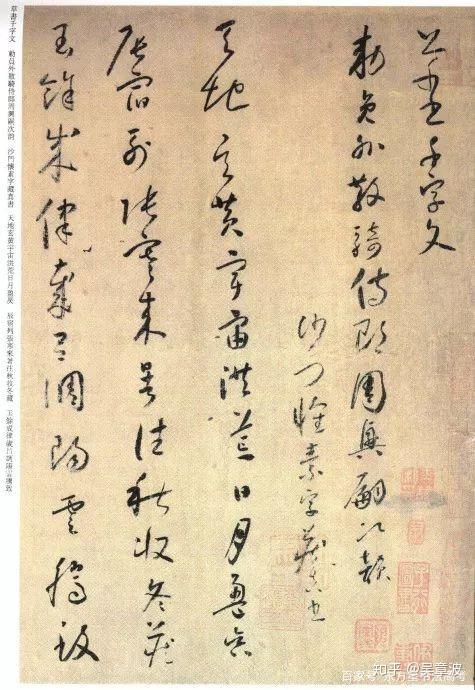 草書千字文
勅員外散騎侍郎周興嗣次韻
沙門懷素字藏真書
天地玄黃宇宙洪荒日月盈昃
辰宿列張寒來暑往秋收冬藏
玉餘成律歲呂調陽雲騰致
草書千字文 勅員外散騎侍郎周興嗣次韵 沙門懷素字藏真書 天地玄黃宇宙洪荒日月盈昃 辰宿列張寒來暑往秋收冬藏 玉餘成律歲呂調陽雲騰致
知乎 @吴章波
百家号